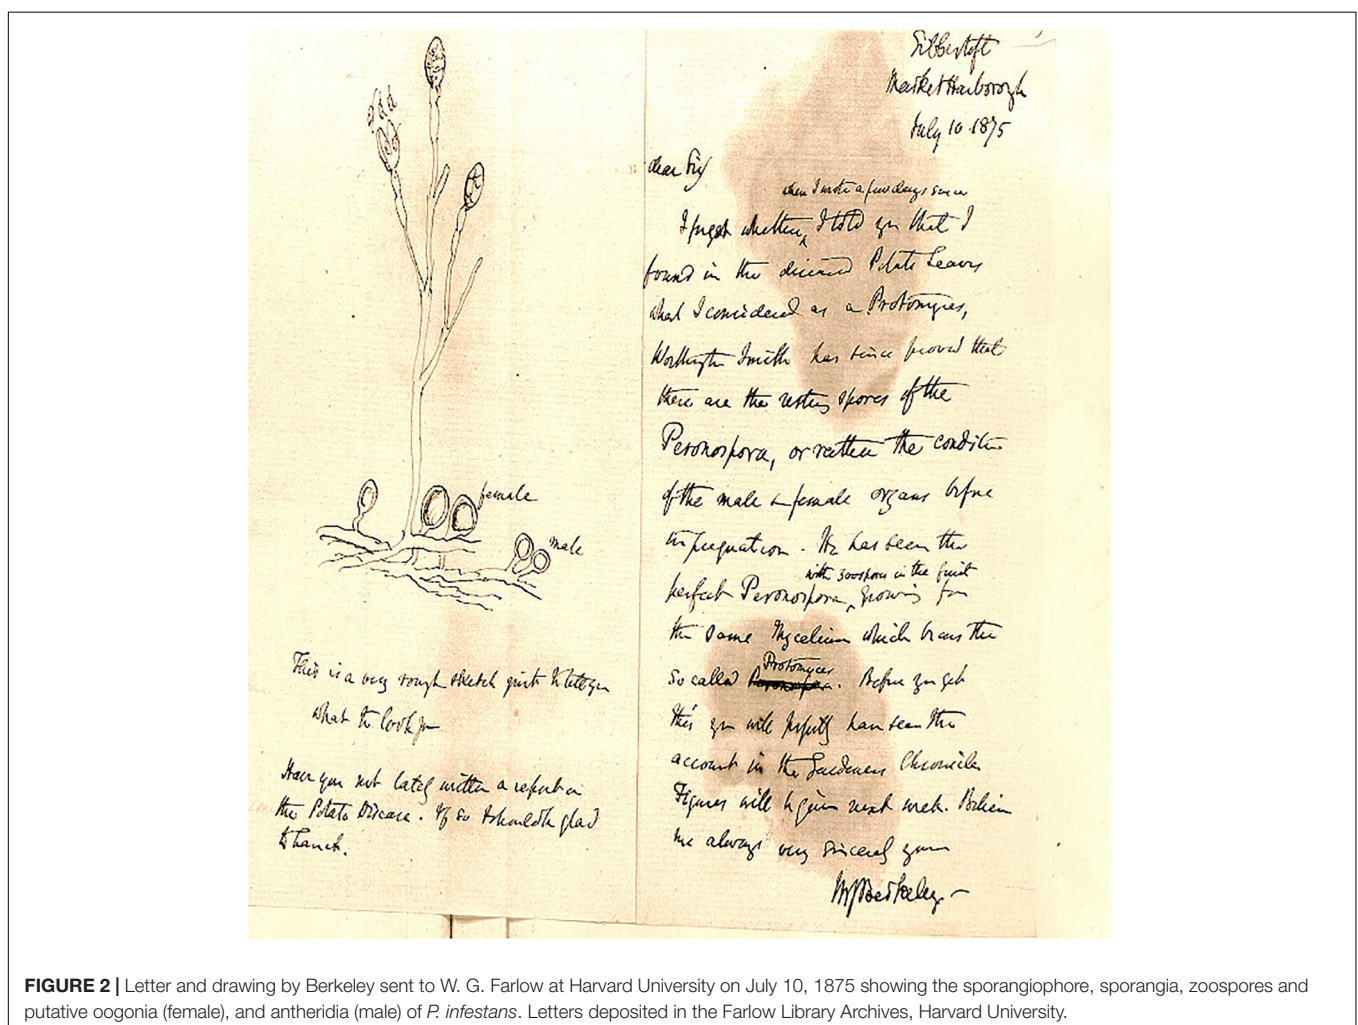 female
male
This is a very rough sketch just to tell you
what to look for
Have you not lately written a report on
the Potato Disease. If so I should be glad
to have it.
Sibbertoft
Market Harborough
July 10. 1875
dear Sir
when I wrote a few days since
I forget whether I told you that I
found in the diseased Potato Leaves
what I considered as a Protomyces,
Worthington Smith has since proved that
these are the resting spores of the
Peronospora, or rather the condition
of the male & female organs before
impregnation. He has seen the
with zoospores in the fruit
perfect Peronospora, growing from
the same Mycelium which bears the
Protomyces
so called Peronospora. Before you get
this you will probably have seen the
account in the Gardeners Chronicle
Figures will be given next week. Believe
me always very sincerely yours
MJBerkeley
FIGURE 2 | Letter and drawing by Berkeley sent to W. G. Farlow at Harvard University on July 10, 1875 showing the sporangiophore, sporangia, zoospores and
putative oogonia (female), and antheridia (male) of P. infestans. Letters deposited in the Farlow Library Archives, Harvard University.